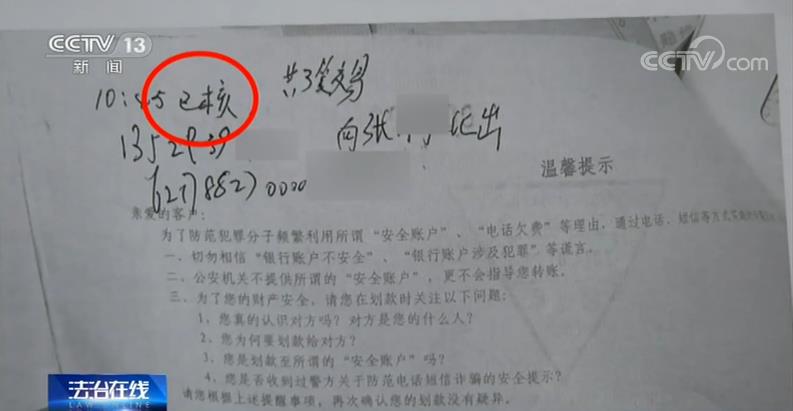 CCTV 13
新闻
CCTV.com
10:45 已核
共3笔交易
1352939
向张 汇出
62178820000
温馨提示
亲爱的客户:
为了防范犯罪分子频繁利用所谓“安全账户”、“电话欠费”等理由,通过电话、短信等方式实施
一、切勿相信“银行账户不安全”、“银行账户涉及犯罪”等谎言。
二、公安机关不提供所谓的“安全账户”,更不会指导您转账。
三、为了您的财产安全,请您在划款时关注以下问题:
1、您真的认识对方吗?对方是您的什么人?
2、您为何要划款给对方?
3、您是划款至所谓的“安全账户”吗?
4、您是否收到过警方关于防范电话短信诈骗的安全提示?
请您根据上述提醒事项,再次确认您的划款没有疑异。
法治在线